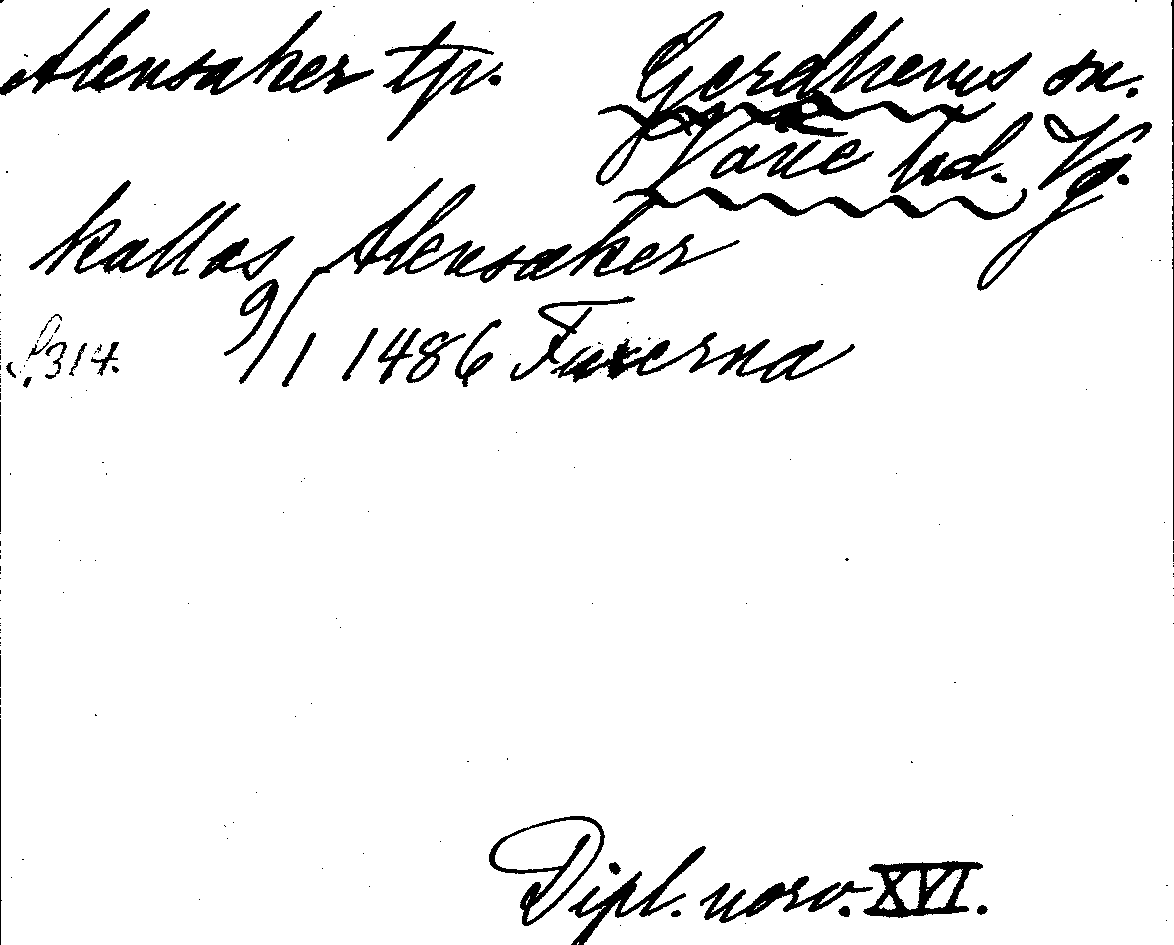 Alensaker tp. Gerdhems sn.
Väne hd. Vg.
kallas Alensaker
s. 314. 9/1 1486 Fuxerna
Dipl. norv. XVI.